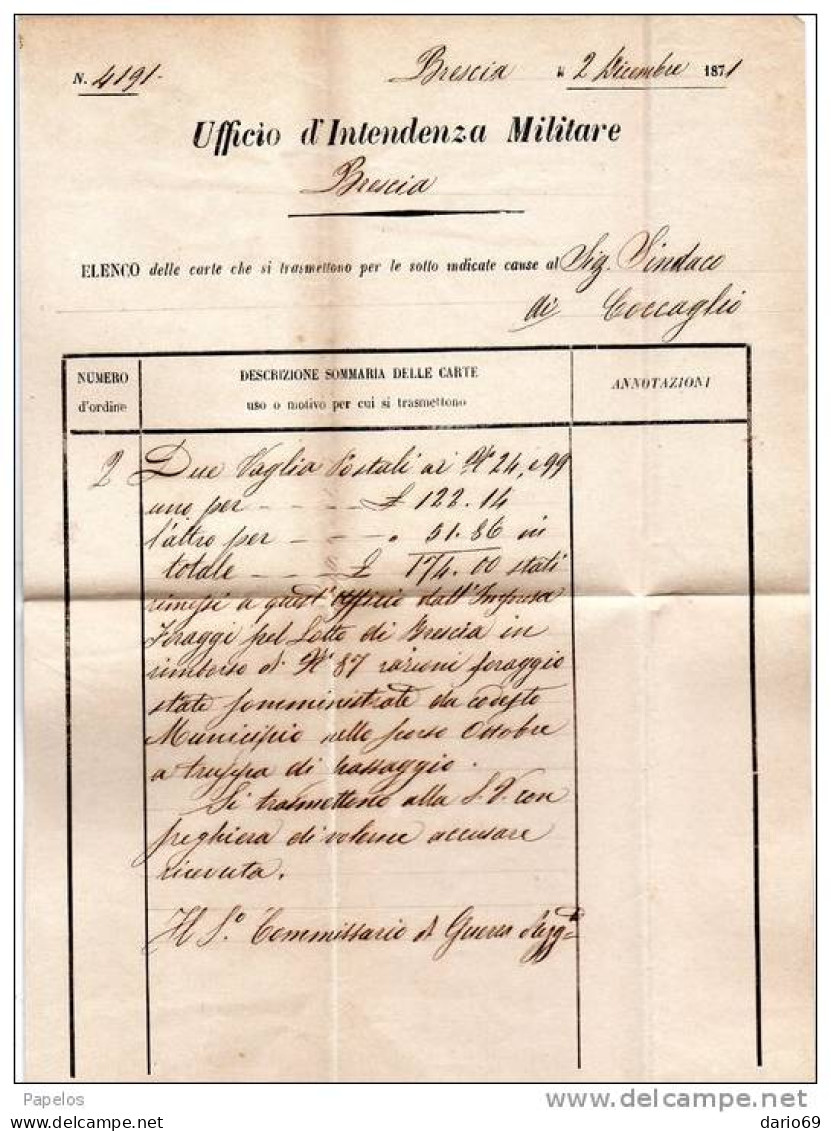 N. 4191.
Brescia li 2 Dicembre 1871
Ufficio d'Intendenza Militare
Brescia
ELENCO delle carte che si trasmettono per le sotto indicate cause al Sig. Sindaco
di Coccaglio
NUMERO
d'ordine
DESCRIZIONE SOMMARIA DELLE CARTE
uso o motivo per cui si trasmettono
ANNOTAZIONI
2 Due Vaglia Postali ai N° 24, e 99
uno per - - - - £ 122.14
l'altro per - - - - „ 51.86 in
totale - - - £ 174.00 stati
rimessi a quest'Ufficio dall'Impresa
Foraggi pel Lotto di Brescia in
rimborso di N° 87 razioni foraggio
state somministrate da codesto
Municipio nello scorso Ottobre
a truppa di passaggio.
Si trasmettono alla S.V. con
preghiera di volerne accusare
ricevuta.
Il S.° Commissario di Guerra Regg.
Papelos
www.delcampe.net
dario69